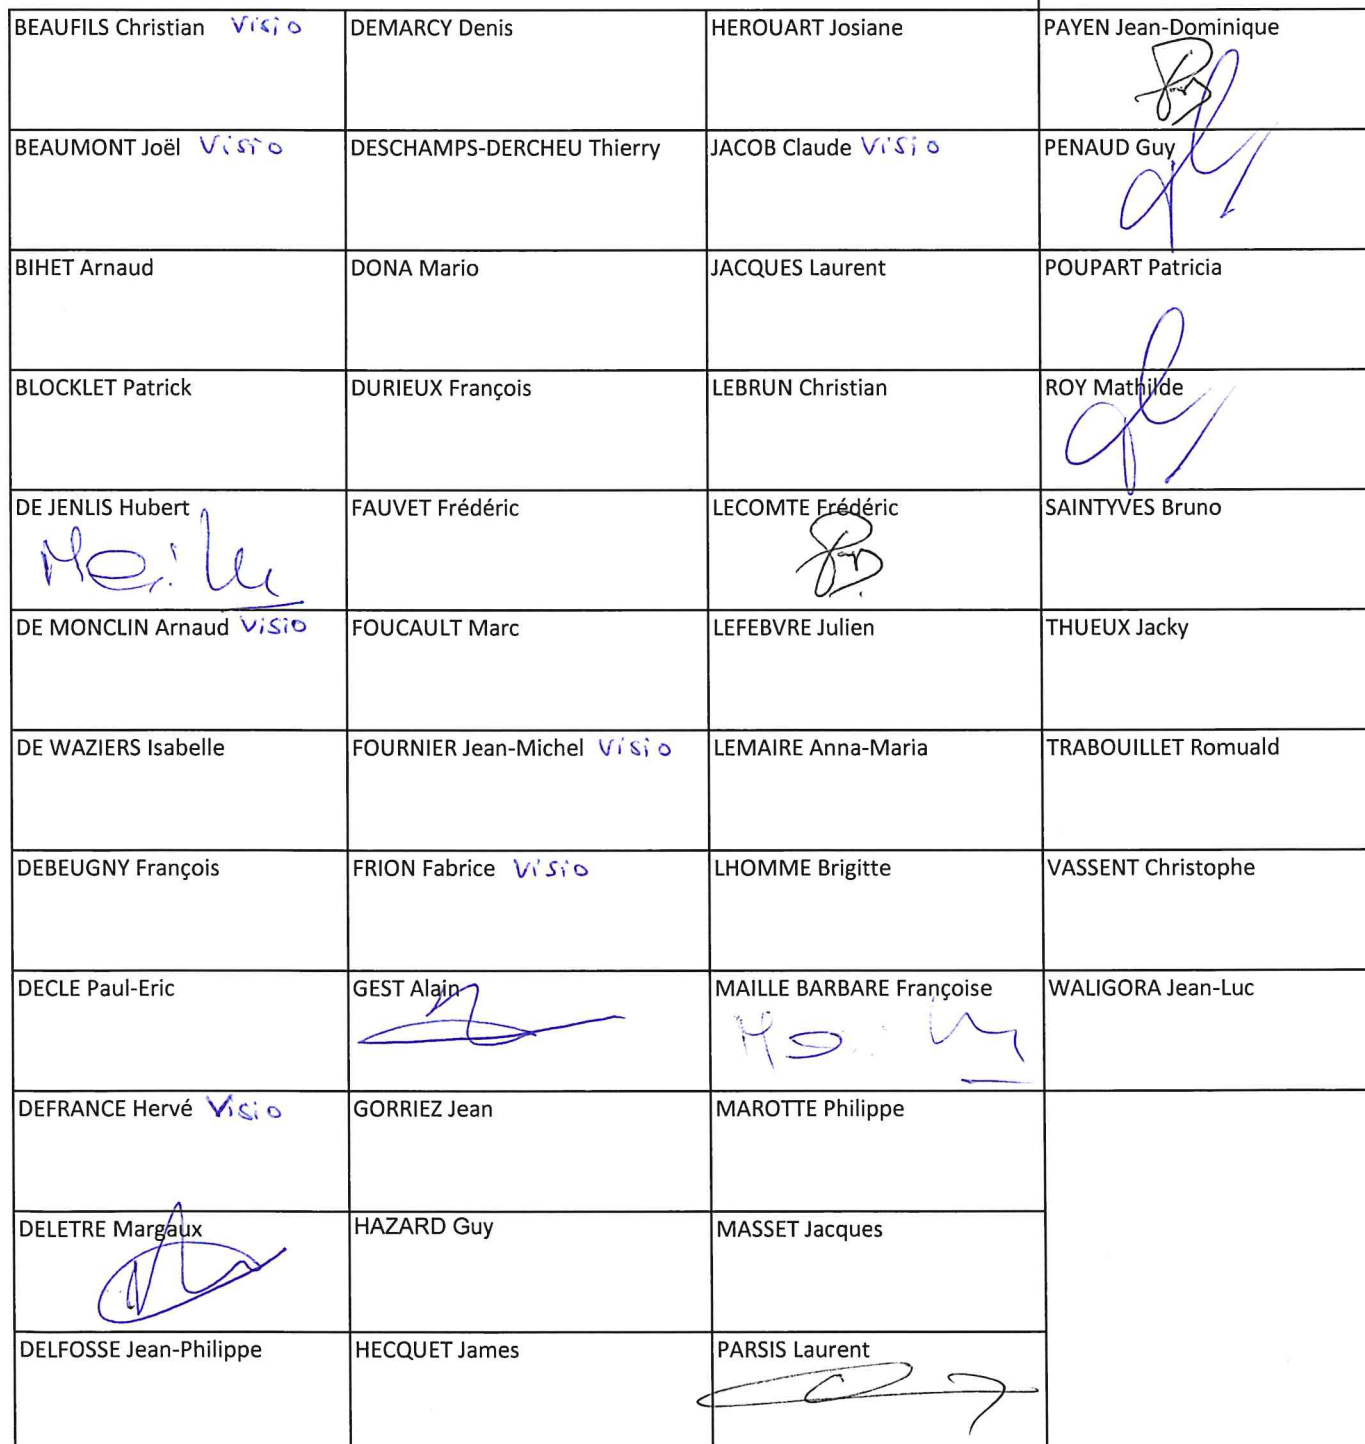 BEAUFILS Christian Visio
DEMARCY Denis
HEROUART Josiane
PAYEN Jean-Dominique
BEAUMONT Joël Visio
DESCHAMPS-DERCHEU Thierry
JACOB Claude Visio
PENAUD Guy
BIHET Arnaud
DONA Mario
JACQUES Laurent
POUPART Patricia
BLOCKLET Patrick
DURIEUX François
LEBRUN Christian
ROY Mathilde
DE JENLIS Hubert
FAUVET Frédéric
LECOMTE Frédéric
SAINTYVES Bruno
DE MONCLIN Arnaud Visio
FOUCAULT Marc
LEFEBVRE Julien
THUEUX Jacky
DE WAZIERS Isabelle
FOURNIER Jean-Michel Visio
LEMAIRE Anna-Maria
TRABOUILLET Romuald
DEBEUGNY François
FRION Fabrice Visio
LHOMME Brigitte
VASSENT Christophe
DECLE Paul-Eric
GEST Alain
MAILLE BARBARE Françoise
WALIGORA Jean-Luc
DEFRANCE Hervé Visio
GORRIEZ Jean
MAROTTE Philippe
DELETRE Margaux
HAZARD Guy
MASSET Jacques
DELFOSSE Jean-Philippe
HECQUET James
PARSIS Laurent